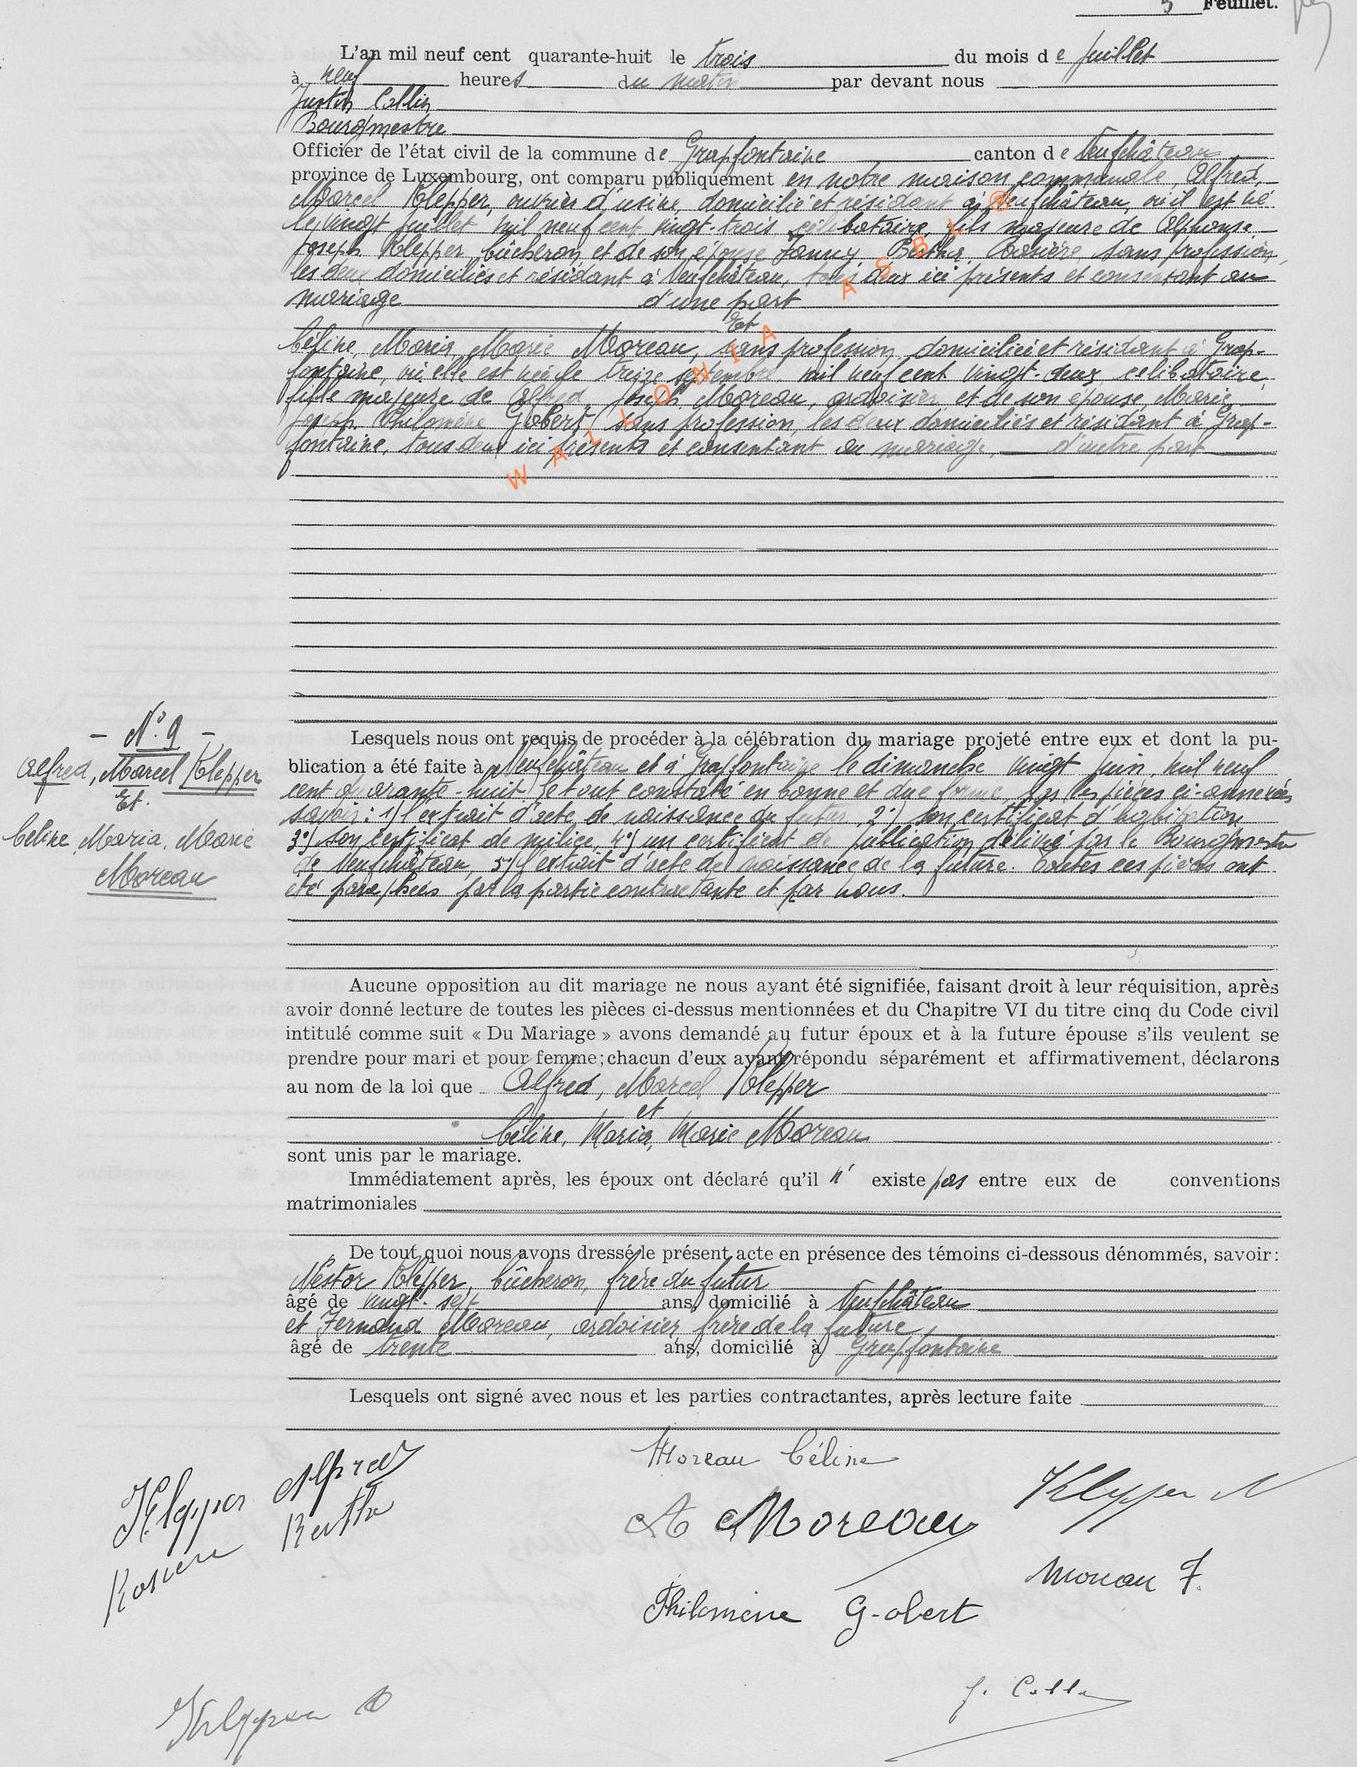 5 Feuillet.
L'an mil neuf cent quarante-huit le trois du mois de juillet
à neuf heures du matin par devant nous
Justin Collin
Bourgmestre
Officier de l'état civil de la commune de Grapfontaine canton de Neufchâteau
province de Luxembourg, ont comparu publiquement en notre maison communale, Alfred,
Marcel Klepper, ouvrier d'usine, domicilié et résidant à Neufchâteau, où il est né
le vingt juillet mil neuf cent vingt-trois, célibataire, fils majeure de Alphonse
Joseph Klepper, bûcheron, et de son épouse Fanny, Bertha, Rosière sans profession,
les deux domiciliés et résidant à Neufchâteau, tous deux ici présents et consentant au
mariage d'une part
Et
Céline, Maria, Marie Moreau, sans profession, domiciliée et résidant à Grap-
fontaine, où elle est née le treize septembre mil neuf cent vingt-deux, célibataire,
fille majeure de Alfred, Joseph, Moreau, ardoisier et de son épouse, Marie,
Joseph, Philomène Gobert, sans profession, les deux domiciliés et résidant à Grap-
fontaine, tous deux ici présents et consentant au mariage d'autre part
WALLONIA ASBL ®
- N° 9 -
Alfred, Marcel Klepper
Et.
Céline, Maria, Marie
Moreau
Lesquels nous ont requis de procéder à la célébration du mariage projeté entre eux et dont la pu-
blication a été faite à Neufchâteau et à Grapfontaine le dimanche vingt juin, mil neuf
cent quarante-huit, le tout constaté en bonne et due forme, par les pièces ci-annexées
savoir: 1°) l'extrait d'acte de naissance du futur, 2°) son certificat d'habitation
3°) son certificat de milice, 4°) un certificat de publication délivré par le Bourgmestre
de Neufchâteau, 5°) l'extrait d'acte de naissance de la future. Toutes ces pièces ont
été paraphées par la partie contractante et par nous.
Aucune opposition au dit mariage ne nous ayant été signifiée, faisant droit à leur réquisition, après
avoir donné lecture de toutes les pièces ci-dessus mentionnées et du Chapitre VI du titre cinq du Code civil
intitulé comme suit « Du Mariage » avons demandé au futur époux et à la future épouse s'ils veulent se
prendre pour mari et pour femme; chacun d'eux ayant répondu séparément et affirmativement, déclarons
au nom de la loi que Alfred, Marcel Klepper
et
Céline, Maria, Marie Moreau
sont unis par le mariage.
Immédiatement après, les époux ont déclaré qu'il n' existe pas entre eux de conventions
matrimoniales
De tout quoi nous avons dressé le présent acte en présence des témoins ci-dessous dénommés, savoir:
Nestor Klepper, bûcheron, frère du futur
âgé de vingt-sept ans, domicilié à Neufchâteau
et Fernand Moreau, ardoisier, frère de la future
âgé de trente ans, domicilié à Grapfontaine
Lesquels ont signé avec nous et les parties contractantes, après lecture faite
Moreau Céline
Klepper Alfred
Klepper N
A Moreau
Rosière Bertha
Moreau F.
Philomène Gobert
J. Collin
Klepper A